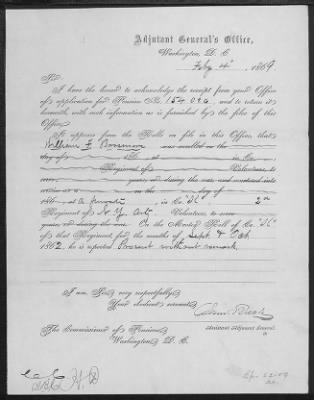 Adjutant General's Office,
Washington, D. C.
Feby 4", 1869
Sir:
I have the honor to acknowledge the receipt from your Office
of application for Pension No. 154.096, and to return it
herewith, with such information as is furnished by the files of this
Office.
It appears from the Rolls on file in this Office, that
William F. was enrolled on the
day of 186 , at in Co.
Regiment of Volunteers, to
serve years, or during the war, and mustered into
service as a on the day of
186 , at a Private, in Co. 2nd
Regiment of N. Y. Arty. Volunteers, to serve
years, or during the war. On the Muster Roll of Co.
of that Regiment, for the months of Sept & Oct,
1862, he is reported Present without remark.
I am, Sir, very respectfully,
Your obedient servant,
Assistant Adjutant General.
The Commissioner of Pensions,
Washington, D. C.